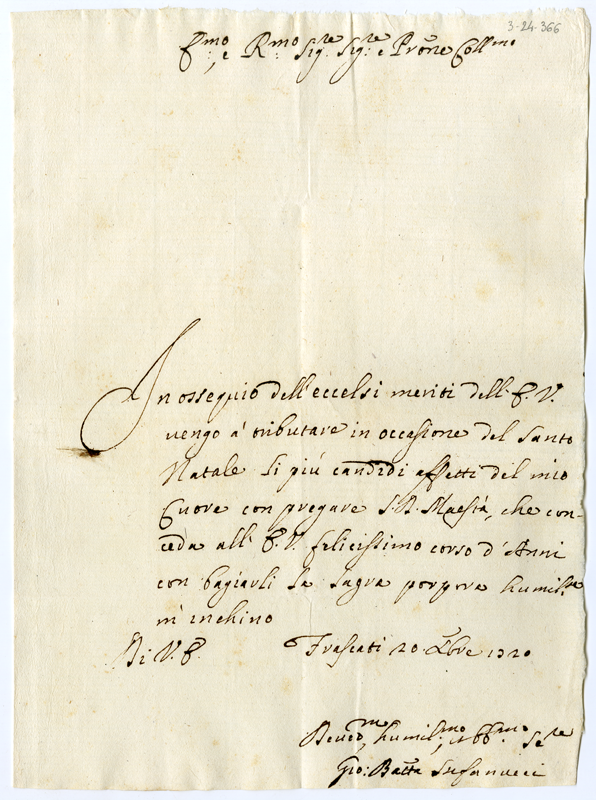 3-24-366
E.mo, e R.mo Sig.re Sig.re e Prone Coll.mo
In ossequio dell'eccelsi meriti dell'E.V.
uengo à tributare in occasione del Santo
Natale li più candidi affetti del mio
Cuore con pregare S.D. Maestà, che con-
ceda all'E.V. felicissimo corso d'Anni
con bagiarli la sagra porpora humil.te
m'inchino
Di V.E. Frascati 20 Xbre 1720
humil.mo, et obb.mo Se.re
Gio: Batta